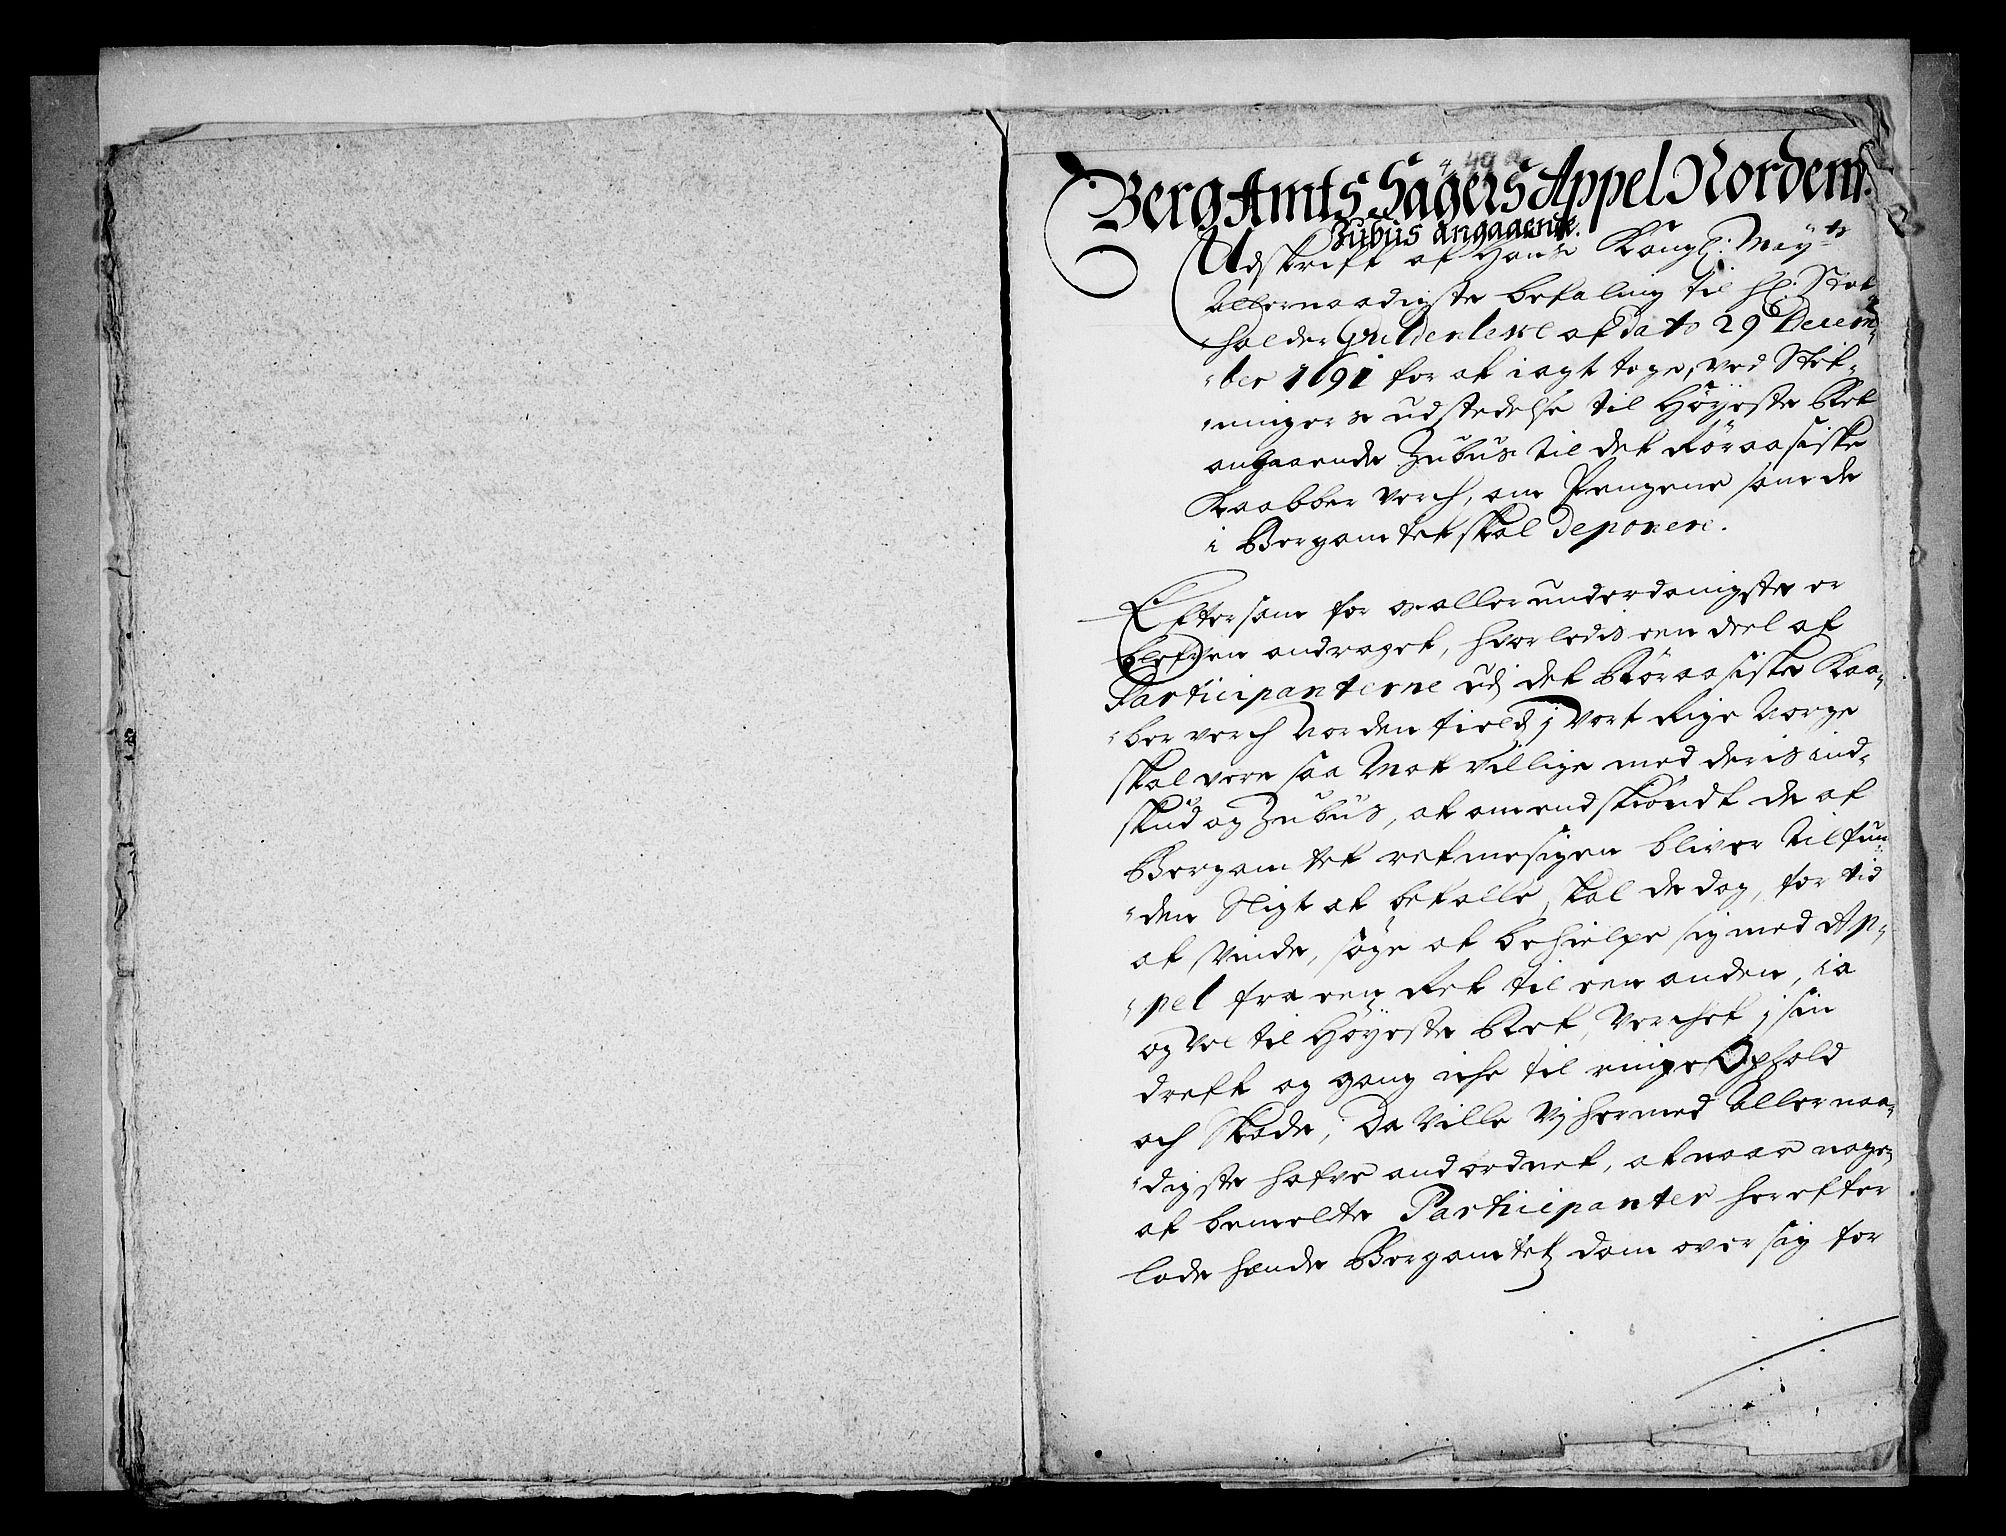 Berg Amts Sagers Appel Nordenf.
Zubus angaaende.
Udskrift af Hans Kongl: May:ts
Allernaadigste befaling til H: Stat
holder Guldenlewe af Dato 29 Decem„
„ber 1691 for at iagt tage, ved Stef„
„ningers udstedelse til Höyeste Ret
angaaende Zubus til det Röraasiske
Kaabber verch, om Pengene som de
i Bergamtet skal deponere.
Eftersom for os allerunderdanigste er
blefven andraget, hvorledis een deel af
Participanterne udj det Röraasiske Kaa„
„ber verch Norden fields j vort Rige Norge
skal vere saa Motvillige med deris ind„
skud og Zubus, at omendskiöndt de af
Bergamtet retmesigen bliver tilfun„
„den Sligt at betalle, skal de dog, for tid
at vinde, söge at behielpe sig med Ap„
„pel fra een Ret til een anden, ia
og vel til Höyeste Ret, Verchet j sin
drift og gang iche til ringe Ophold
och Skade; Da Ville Vj hermed Allernaa„
„digste hafve andordnet, at naar nogen
af bemelte Participanter herefter
lade hende Bergamtets dom over sig for